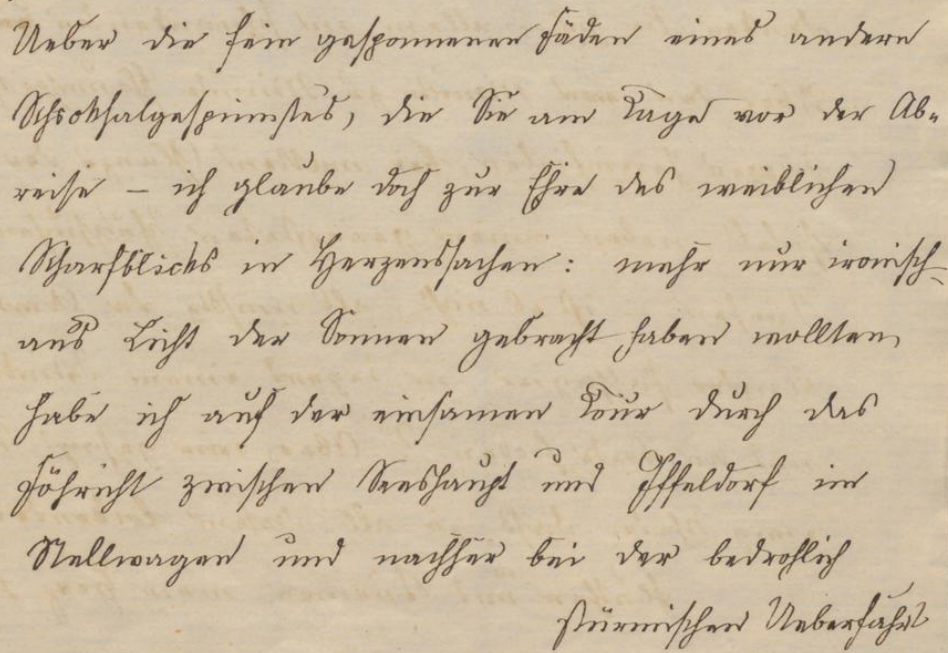 Ueber die fein gesponnenen Fäden eines andern
Schicksalgespinnstes, die Sie am Tage vor der Ab-
reise – ich glaube doch zur Ehre des weiblichen
Scharfblicks in Herzenssachen: mehr nur ironisch –
ans Licht der Sonnen gebracht haben wollten,
habe ich auf der einsamen Tour durch das
Föhricht zwischen Seeshaupt und Iffeldorf im
Stellwagen und nachher bei der bedrohlich
stürmischen Ueberfahrt